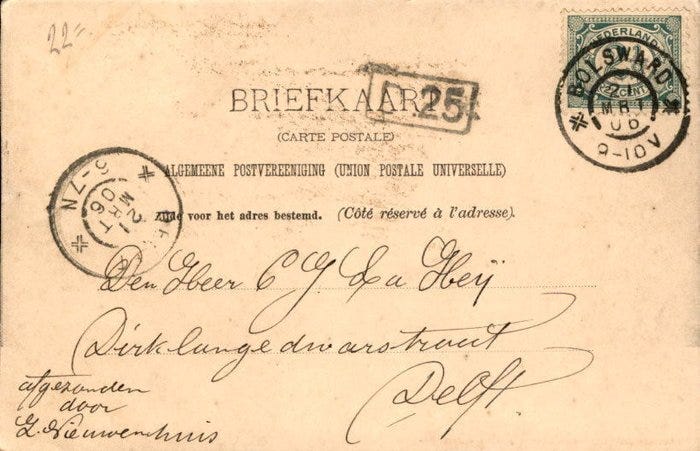 22=
NEDERLAND
2½ CENT
BOLSWARD
21
MRT
06
9-10V
D.25
BRIEFKAART
(CARTE POSTALE)
ALGEMEENE POSTVEREENIGING (UNION POSTALE UNIVERSELLE)
Zijde voor het adres bestemd. (Côté réservé à l'adresse).
5-7N
21
MRT
06
Den Heer C J La Heij
Dirklangedwarsstraat
Delft
afgezonden
door
Z. Nieuwenhuis